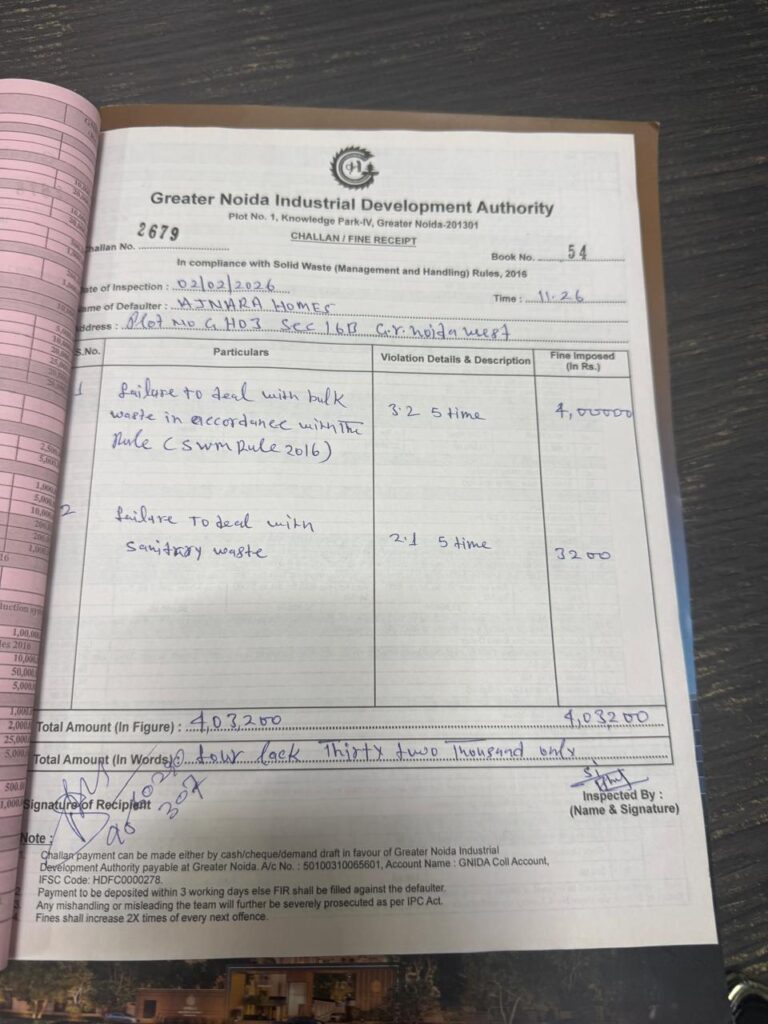 Greater Noida Industrial Development Authority
Plot No. 1, Knowledge Park-IV, Greater Noida-201301
CHALLAN / FINE RECEIPT
Challan No. 2679
Book No. 54
In compliance with Solid Waste (Management and Handling) Rules, 2016
Date of Inspection : 02/02/2026 Time : 11.26
Name of Defaulter : AJNARA HOMES
Address : Plot No GH03 Sec 16B Gr. noida west
S.No. Particulars Violation Details & Description Fine Imposed (In Rs.)
1 failure to deal with bulk
waste in accordance with The 3.2 5 time 4,00000
Rule (SWM Rule 2016)
2 failure To deal with
sanitary waste 2.1 5 time 3200
Total Amount (In Figure) : 4,03,200 4,03200
Total Amount (In Words) four lack Thirty two Thousand only
Signature of Recipient
Inspected By :
(Name & Signature)
Note :
1. Challan payment can be made either by cash/cheque/demand draft in favour of Greater Noida Industrial
Development Authority payable at Greater Noida. A/c No. : 50100310065601, Account Name : GNIDA Coll Account,
IFSC Code: HDFC0000278.
2. Payment to be deposited within 3 working days else FIR shall be filled against the defaulter.
3. Any mishandling or misleading the team will further be severely prosecuted as per IPC Act.
4. Fines shall increase 2X times of every next offence.